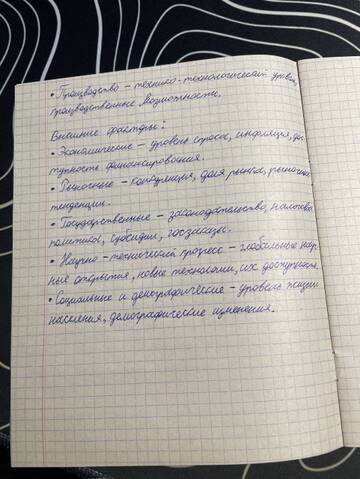 • Производство – технико-технологический уровень,
производственные возможности.
Внешние факторы:
• Экономические – уровень спроса, инфляция, дос-
тупность финансирования.
• Рыночные – конкуренция, доля рынка, рыночные
тенденции.
• Государственные – законодательство, налоговая
политика, субсидии, госзаказы.
• Научно-технический прогресс – глобальные науч-
ные открытия, новые технологии, их доступность.
• Социальные и демографические – уровень жизни
населения, демографические изменения.